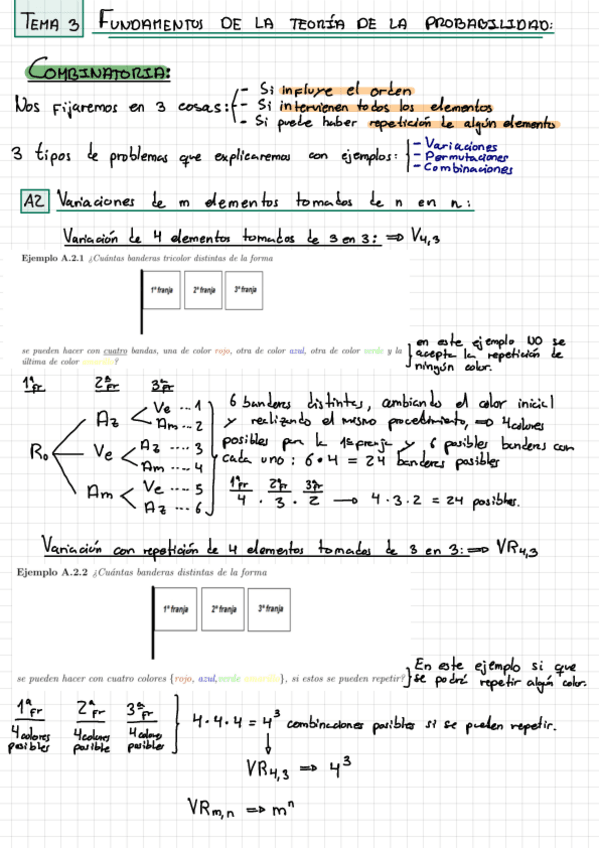 TEMA 3 FUNDAMENTOS DE LA TEORÍA DE LA PROBABILIDAD:
COMBINATORIA:
Nos fijaremos en 3 cosas:
- Si influye el orden
- Si intervienen todos los elementos
- Si puede haber repetición de algún elemento
3 tipos de problemas que explicaremos con ejemplos:
- Variaciones
- Permutaciones
- Combinaciones
A2 Variaciones de m elementos tomados de n en n:
Variación de 4 elementos tomados de 3 en 3: ⇒ V4,3
Ejemplo A.2.1 ¿Cuántas banderas tricolor distintas de la forma
1ª franja 2ª franja 3ª franja
se pueden hacer con cuatro bandas, una de color rojo, otra de color azul, otra de color verde y la
última de color amarillo?
en este ejemplo NO se
acepta la repetición de
ningún color.
1ª Fr 2ª Fr 3ª Fr
Ro
Az
Ve ... 1
Am ... 2
Ve
Az .... 3
Am .... 4
Am
Ve .... 5
Az ... 6
6 banderas distintas, cambiando el color inicial
y realizando el mismo procedimiento, ⇒ 4 colores
posibles para la 1ª franja y 6 posibles banderas con
cada uno: 6·4 = 24 banderas posibles
1ª fr 2ª fr 3ª fr
4 · 3 · 2 → 4·3·2 = 24 posibles.
Variación con repetición de 4 elementos tomados de 3 en 3: ⇒ VR4,3
Ejemplo A.2.2 ¿Cuántas banderas distintas de la forma
1ª franja 2ª franja 3ª franja
se pueden hacer con cuatro colores {rojo, azul, verde amarillo}, si estos se pueden repetir?
En este ejemplo si que
se podrá repetir algún color.
1ª Fr 2ª Fr 3ª Fr
4 colores posibles 4 colores posible 4 colores posibles
4·4·4 = 4³ combinaciones posibles si se pueden repetir.
VR4,3 ⇒ 4³
VRm,n ⇒ mⁿ